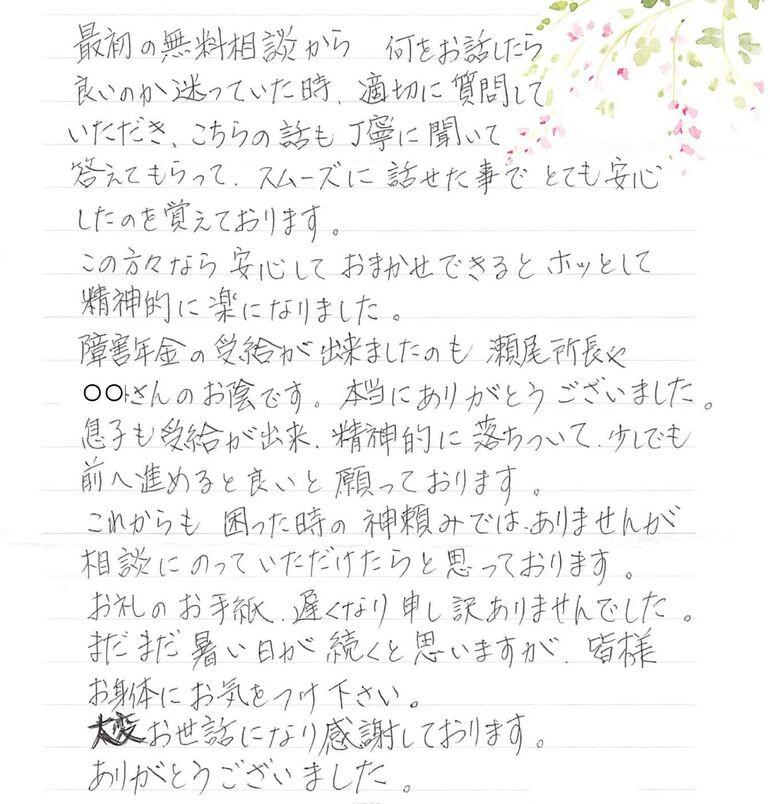 最初の無料相談から 何をお話したら
良いのか迷っていた時、適切に質問して
いただき、こちらの話も丁寧に聞いて
答えてもらって、スムーズに話せた事でとても安心
したのを覚えております。
この方々なら安心しておまかせできるとホッとして
精神的に楽になりました。
障害年金の受給が出来ましたのも瀬尾所長や
○○さんのお陰です。本当にありがとうございました。
息子も受給が出来、精神的に落ちついて、少しでも
前へ進めると良いと願っております。
これからも困った時の神頼みでは、ありませんが
相談にのっていただけたらと思っております。
お礼のお手紙、遅くなり申し訳ありませんでした。
まだまだ暑い日が続くと思いますが、皆様
お身体にお気をつけ下さい。
大変お世話になり感謝しております。
ありがとうございました。